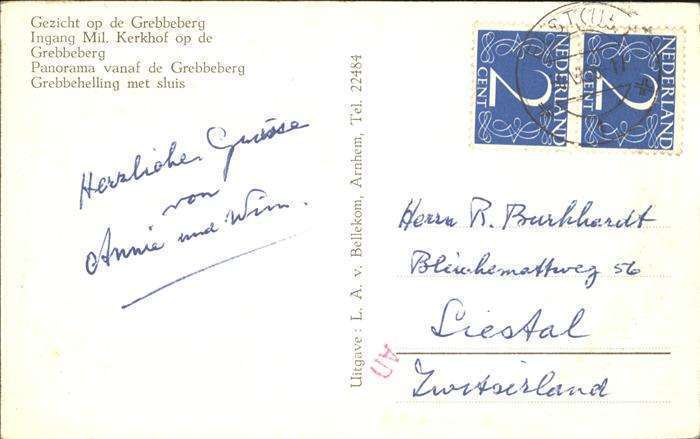 Gezicht op de Grebbeberg
Ingang Mil. Kerkhof op de
Grebbeberg
Panorama vanaf de Grebbeberg
Grebbehelling met sluis
Herzliche Grüsse
von
Annie und Wim.
Uitgave : L. A. v. Bellekom, Arnhem, Tel. 22484
NEDERLAND
2
CENT
NEDERLAND
2
CENT
Herrn R. Burkhardt
Bleichemattweg 56
Liestal
Zwitserland